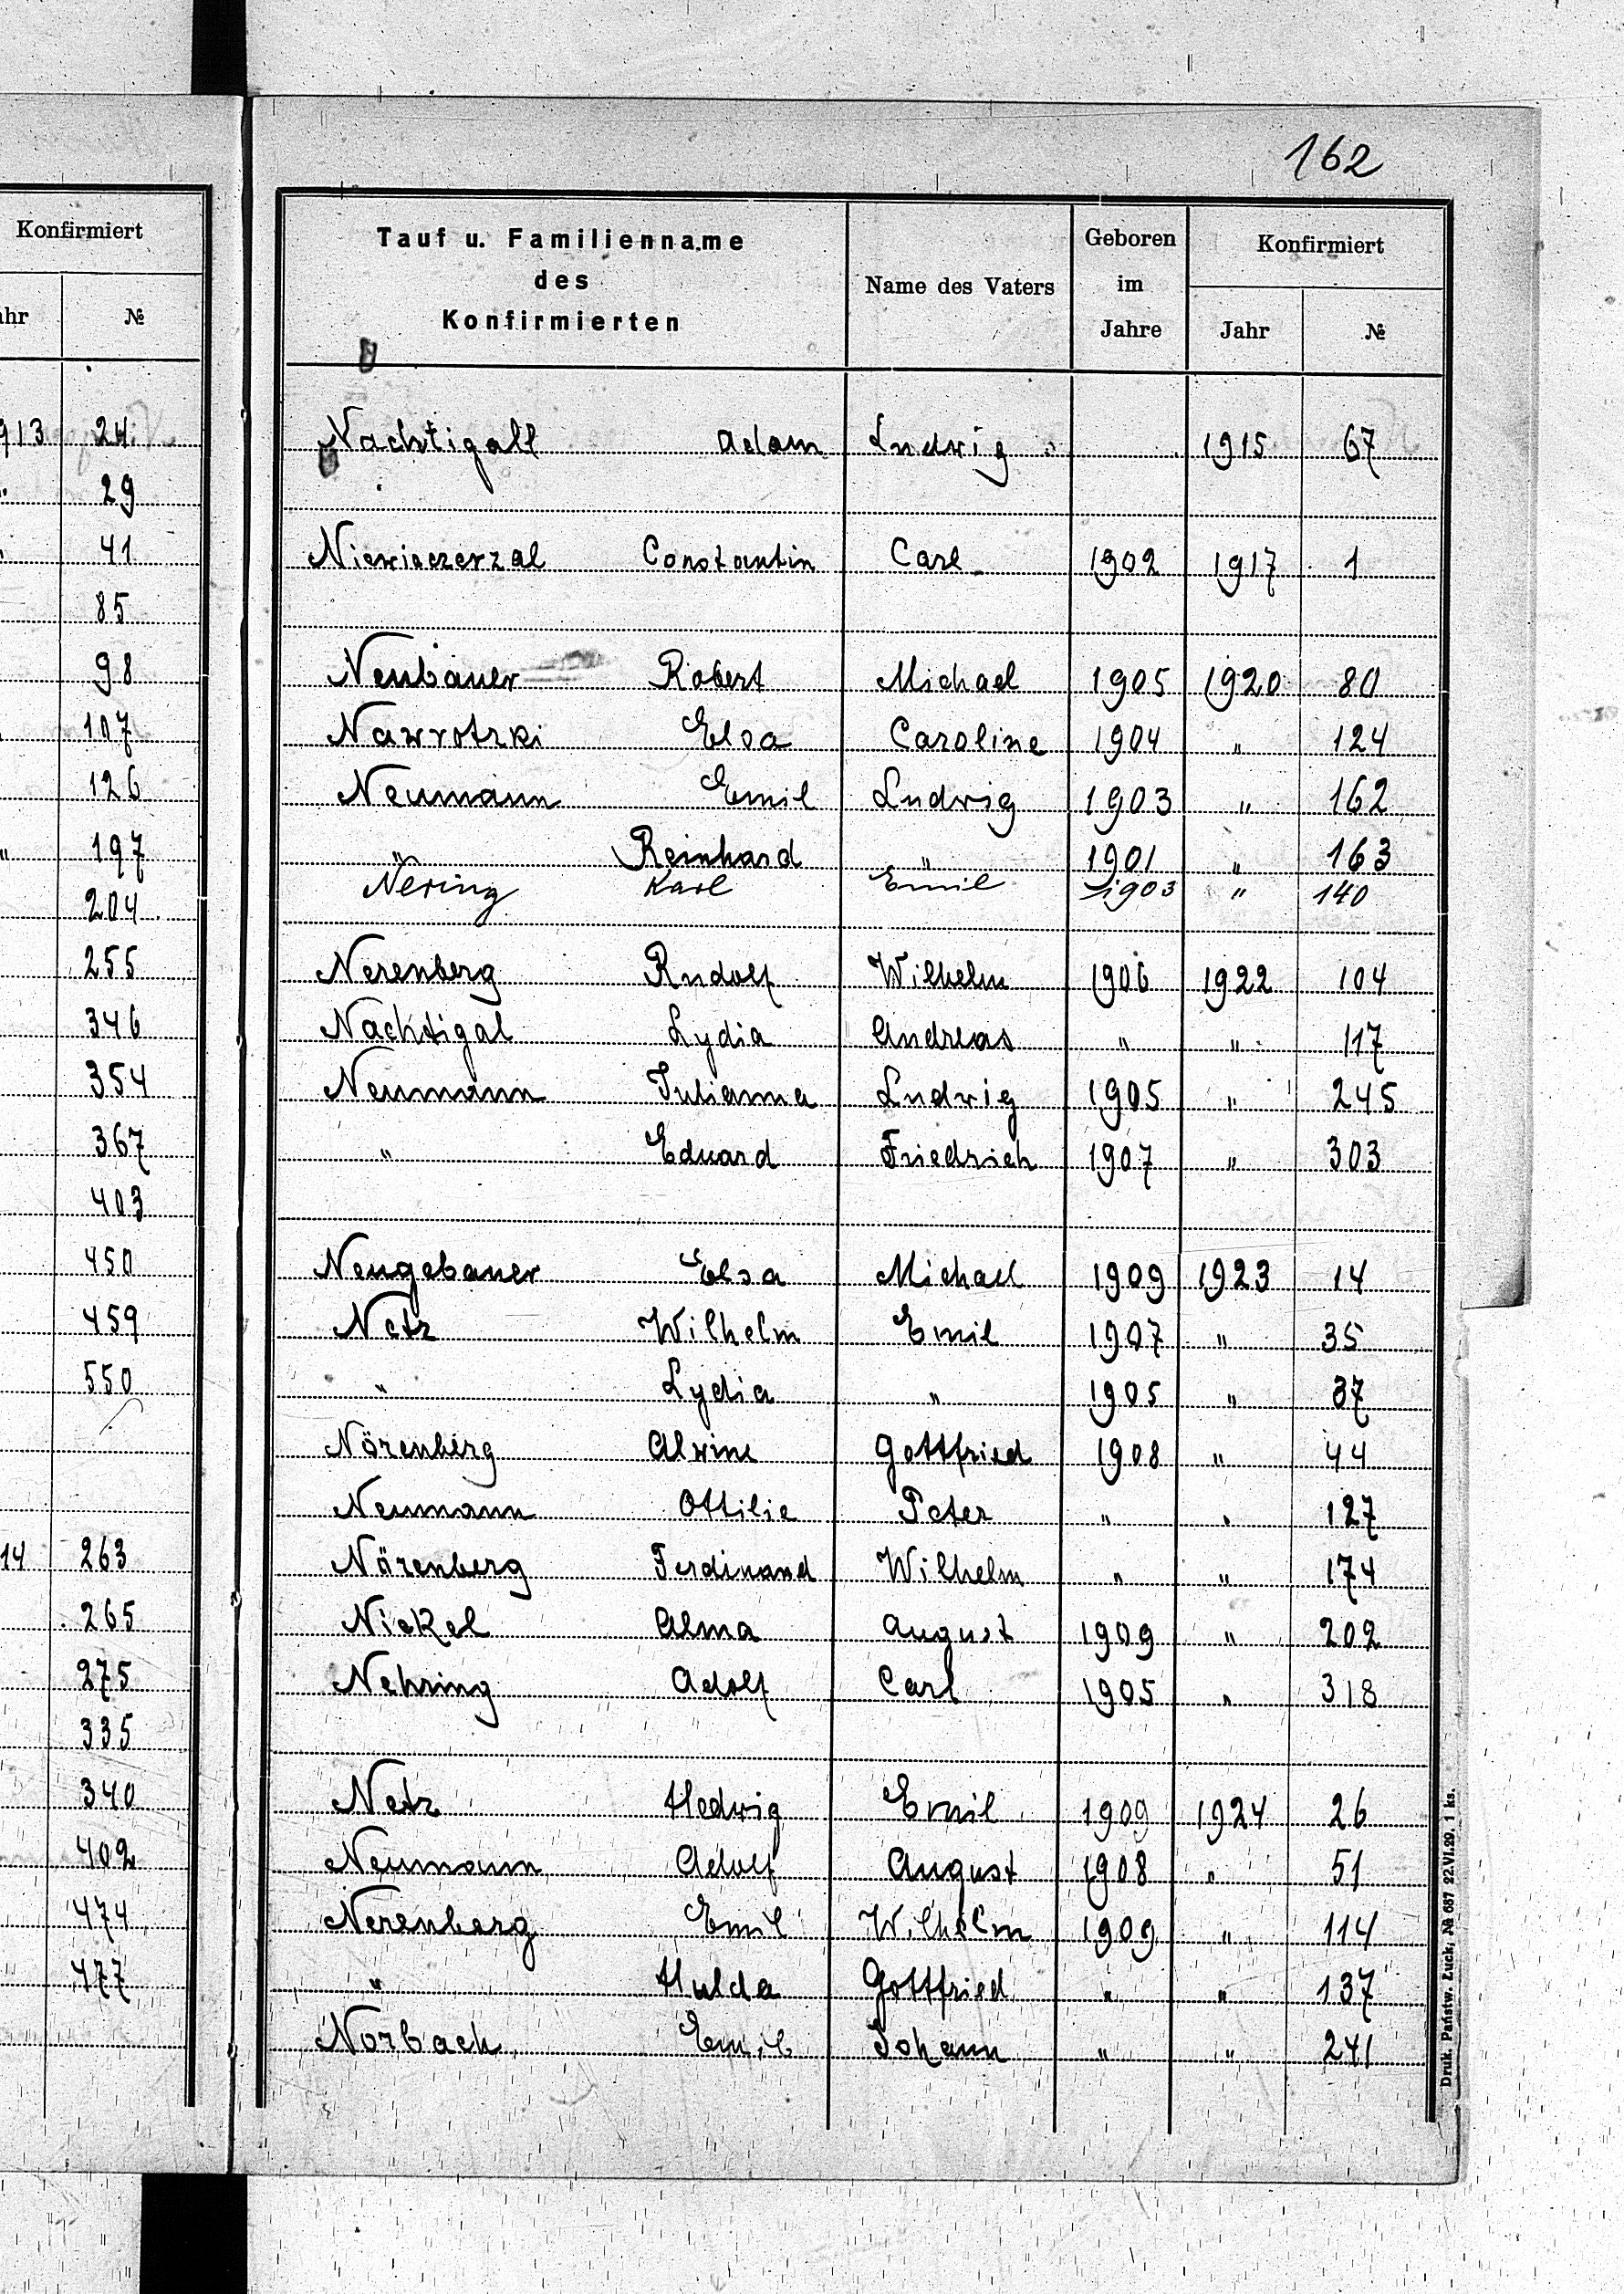 162
Konfirmiert
ahr №
913 24
" 29
" 41
85
98
107
126
" 197
204
255
346
354
367
403
450
459
550
14 263
265
275
335
340
402
474
477
Tauf u. Familienname des Konfirmierten Name des Vaters Geboren im Jahre Konfirmiert
Jahr №
Nachtigall Adam Ludwig 1915 67
Constantin Carl 1902 1917 1
Neubauer Robert Michael 1905 1920 80
Nawrotzki Elsa Caroline 1904 " 124
Neumann Emil Ludwig 1903 " 162
" Reinhard " 1901 " 163
Nering Karl Emil 1903 " 140
Nerenberg Rudolf Wilhelm 1906 1922 104
Nachtigal Lydia Andreas " " 117
Neumann Julianna Ludwig 1905 " 245
" Eduard Friedrich 1907 " 303
Neugebauer Elsa Michael 1909 1923 14
Netz Wilhelm Emil 1907 " 35
" Lydia " 1905 " 37
Nörenberg Alwine Gottfried 1908 " 44
Neumann Ottilie Peter " " 127
Nörenberg Ferdinand Wilhelm " " 174
Nickel Alma August 1909 " 202
Nehring Adolf Carl 1905 " 318
Netz Hedwig Emil 1909 1924 26
Neumann Adolf August 1908 " 51
Nerenberg Emil Wilhelm 1909 " 114
" Hulda Gottfried " " 137
Norbach Emil Johann " " 241
Druk. Państw. Łuck, № 687 22.VI.29. 1 ks.